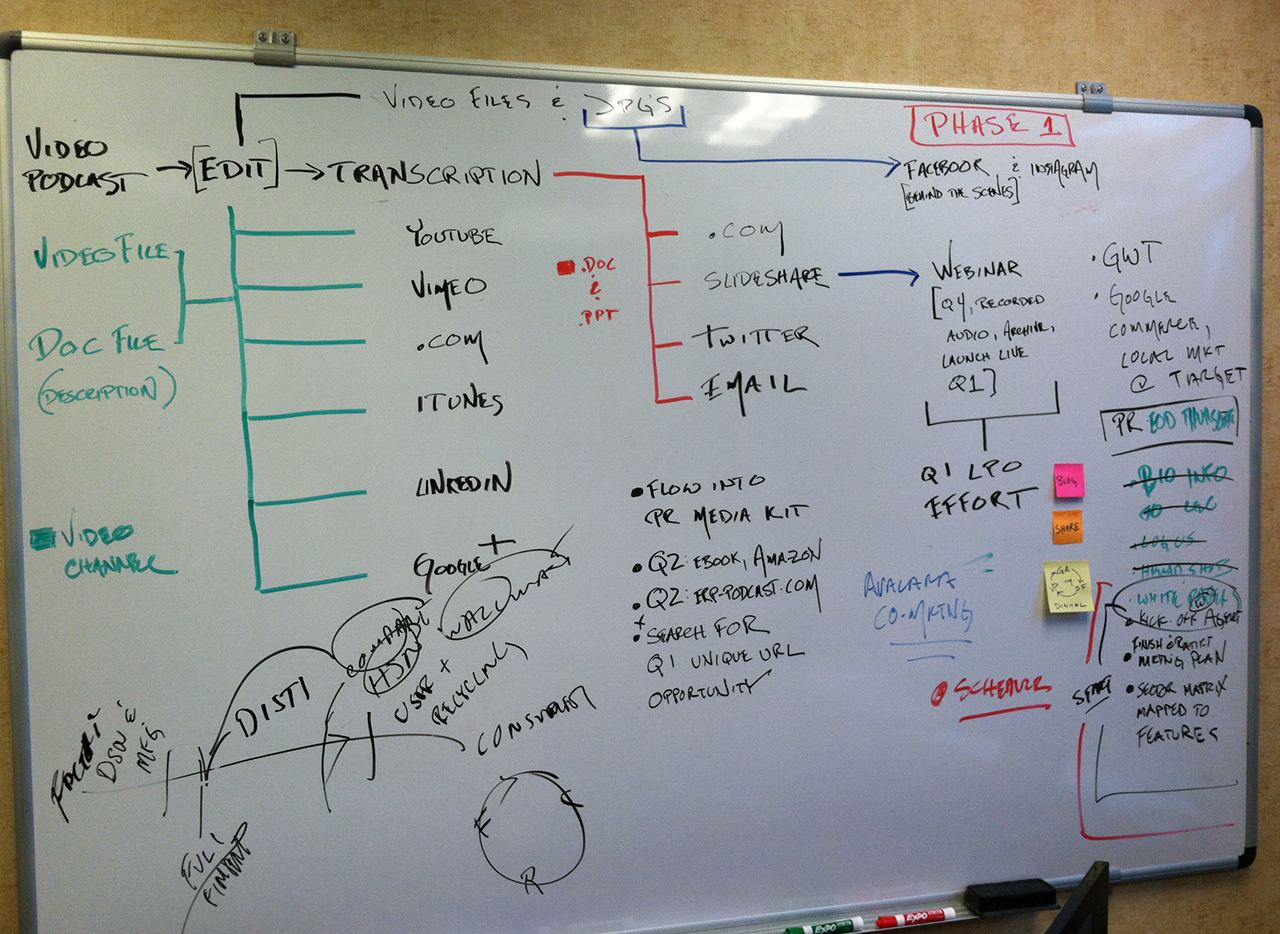 VIDEO FILES & JPG'S
PHASE 1
VIDEO
PODCAST
[EDIT]
TRANSCRIPTION
FACEBOOK & INSTAGRAM
[BEHIND THE SCENES]
VIDEO FILE
DOC FILE
(DESCRIPTION)
VIDEO
CHANNEL
YOUTUBE
VIMEO
.COM
ITUNES
LINKEDIN
GOOGLE+
.DOC
&
.PPT
.COM
SLIDESHARE
TWITTER
EMAIL
WEBINAR
[Q4, RECORDED
AUDIO, ARCHIVE,
LAUNCH LIVE
Q1]
Q1 LPO
EFFORT
• GWT
• GOOGLE
COMMERCE,
LOCAL MKT
@ TARGET
PR EOD
• BIO INFO
• LOGOS
• HEAD SHOTS
• WHITE
• KICK-OFF
• MRTNG PLAN
• SECTOR MATRIX
MAPPED TO
FEATURES
START
BLDG
SHARE
GA
SF
DIGITAL
• FLOW INTO
PR MEDIA KIT
• Q2: EBOOK, AMAZON
• Q2: ERP-PODCAST.COM
• SEARCH FOR
Q1 UNIQUE URL
OPPORTUNITY
AVALARA
CO-MRTNG
DISTI
USER +
RECYCLING
DSN &
MFG
FUL
R
EXPO
EXPO